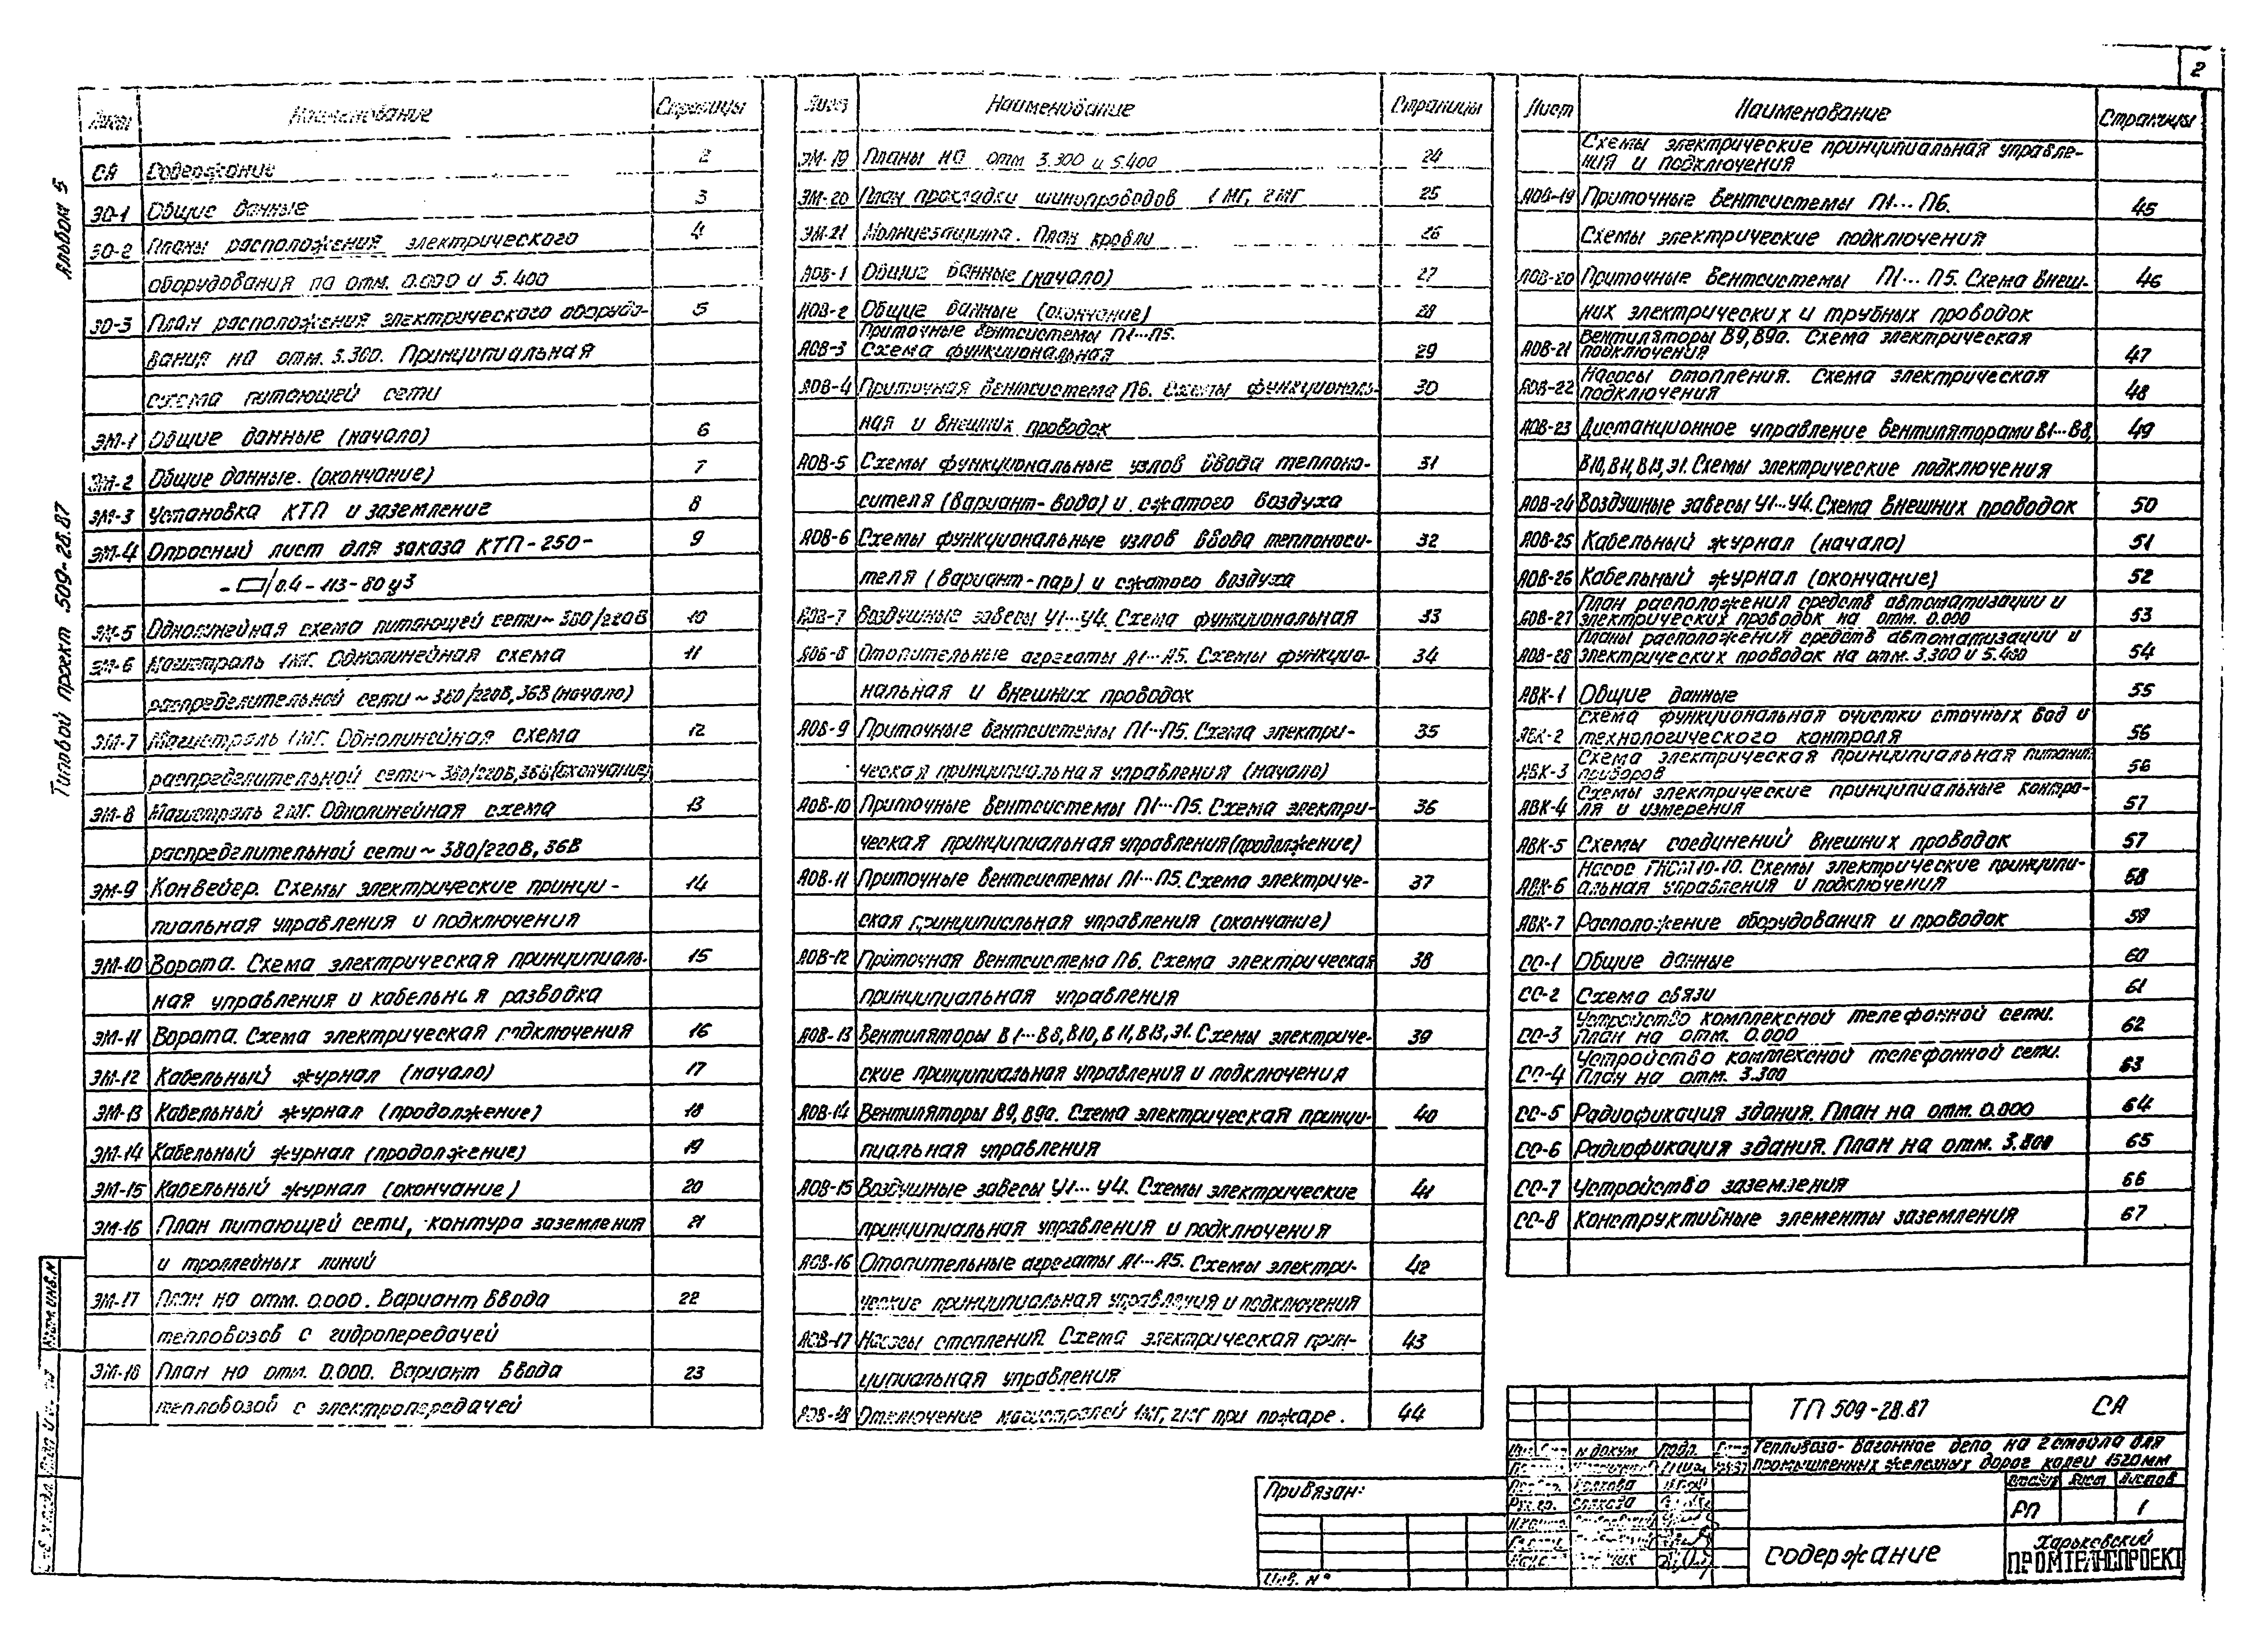 2
Альбом 5
Типовой проект 509-28.87
Лист Наименование Страницы
СА Содержание 2
ЭО-1 Общие данные 3
ЭО-2 Планы расположения электрического 4
оборудования на отм. 0.000 и 5.400
ЭО-3 План расположения электрического оборудо- 5
вания на отм. 3.300. Принципиальная
схема питающей сети
ЭМ-1 Общие данные (начало) 6
ЭМ-2 Общие данные. (окончание) 7
ЭМ-3 Установка КТП и заземление 8
ЭМ-4 Опросный лист для заказа КТП-250- 9
-▭/0.4-113-80 у3
ЭМ-5 Однолинейная схема питающей сети ~ 380/220В 10
ЭМ-6 Магистраль 1МГ. Однолинейная схема 11
распределительной сети ~ 380/220В, 36В (начало)
ЭМ-7 Магистраль 1МГ. Однолинейная схема 12
распределительной сети ~ 380/220В, 36В (окончание)
ЭМ-8 Магистраль 2МГ. Однолинейная схема 13
распределительной сети ~ 380/220В, 36В
ЭМ-9 Конвейер. Схемы электрические принци- 14
пиальная управления и подключения
ЭМ-10 Ворота. Схема электрическая принципиаль- 15
ная управления и кабельная разводка
ЭМ-11 Ворота. Схема электрическая подключения 16
ЭМ-12 Кабельный журнал (начало) 17
ЭМ-13 Кабельный журнал (продолжение) 18
ЭМ-14 Кабельный журнал (продолжение) 19
ЭМ-15 Кабельный журнал (окончание) 20
ЭМ-16 План питающей сети, контура заземления 21
и троллейных линий
ЭМ-17 План на отм. 0.000. Вариант ввода 22
тепловозов с гидропередачей
ЭМ-18 План на отм. 0.000. Вариант ввода 23
тепловозов с электропередачей
Лист Наименование Страницы
ЭМ-19 Планы на отм 3.300 и 5.400 24
ЭМ-20 План прокладки шинопроводов 1МГ, 2МГ 25
ЭМ-21 Молниезащита. План кровли 26
АОВ-1 Общие данные (начало) 27
АОВ-2 Общие данные (окончание) 28
Приточные вентсистемы П1...П5.
АОВ-3 Схема функциональная 29
АОВ-4 Приточная вентсистема П6. Схемы функциональ- 30
ная и внешних проводок
АОВ-5 Схемы функциональные узлов ввода теплоно- 31
сителя (вариант-вода) и сжатого воздуха
АОВ-6 Схемы функциональные узлов ввода теплоноси- 32
теля (вариант-пар) и сжатого воздуха
АОВ-7 Воздушные завесы У1...У4. Схема функциональная 33
АОВ-8 Отопительные агрегаты А1...А5. Схемы функцио- 34
нальная и внешних проводок
АОВ-9 Приточные вентсистемы П1...П5. Схема электри- 35
ческая принципиальная управления (начало)
АОВ-10 Приточные вентсистемы П1...П5. Схема электри- 36
ческая принципиальная управления (продолжение)
АОВ-11 Приточные вентсистемы П1...П5. Схема электриче- 37
ская принципиальная управления (окончание)
АОВ-12 Приточная вентсистема П6. Схема электрическая 38
принципиальная управления
АОВ-13 Вентиляторы В1...В8, В10, В11, В13, Э1. Схемы электриче- 39
ские принципиальная управления и подключения
АОВ-14 Вентиляторы В9, В9а. Схема электрическая принци- 40
пиальная управления
АОВ-15 Воздушные завесы У1...У4. Схемы электрические 41
принципиальная управления и подключения
АОВ-16 Отопительные агрегаты А1...А5. Схемы электри- 42
ческие принципиальная управления и подключения
АОВ-17 Насосы отопления. Схема электрическая прин- 43
ципиальная управления
АОВ-18 Отключение магистралей 1МГ, 2МГ при пожаре. 44
Лист Наименование Страницы
Схемы электрические принципиальная управле-
ния и подключения
АОВ-19 Приточные вентсистемы П1...П6. 45
Схемы электрические подключения
АОВ-20 Приточные вентсистемы П1...П5. Схема внеш- 46
них электрических и трубных проводок
АОВ-21 Вентиляторы В9, В9а. Схема электрическая 47
подключения
АОВ-22 Насосы отопления. Схема электрическая 48
подключения
АОВ-23 Дистанционное управление вентиляторами В1...В8, 49
В10, В11, В13, Э1. Схемы электрические подключения
АОВ-24 Воздушные завесы У1...У4. Схема внешних проводок 50
АОВ-25 Кабельный журнал (начало) 51
АОВ-26 Кабельный журнал (окончание) 52
План расположения средств автоматизации и
АОВ-27 электрических проводок на отм. 0.000 53
Планы расположения средств автоматизации и
АОВ-28 электрических проводок на отм. 3.300 и 5.400 54
АВК-1 Общие данные 55
Схема функциональная очистки сточных вод и
АВК-2 технологического контроля 56
Схема электрическая принципиальная питания
АВК-3 приборов 56
Схемы электрические принципиальные контро-
АВК-4 ля и измерения 57
АВК-5 Схемы соединений внешних проводок 57
Насос ГНОМ 10-10. Схемы электрические принципи-
АВК-6 альная управления и подключения 58
АВК-7 Расположение оборудования и проводок 59
СС-1 Общие данные 60
СС-2 Схема связи 61
Устройство комплексной телефонной сети.
СС-3 План на отм. 0.000 62
Устройство комплексной телефонной сети.
СС-4 План на отм. 3.300 63
СС-5 Радиофикация здания. План на отм. 0.000 64
СС-6 Радиофикация здания. План на отм. 3.300 65
СС-7 Устройство заземления 66
СС-8 Конструктивные элементы заземления 67
Взам. инв. №
Привязан:
Инв. №
ТП 509-28.87 СА
N докум. Подп.
Тепловозо-вагонное депо на 2 стойла для
промышленных железных дорог колеи 1520мм
Стадия Лист Листов
РП 1
Содержание
Харьковский
ПРОМТРАНСПРОЕКТ